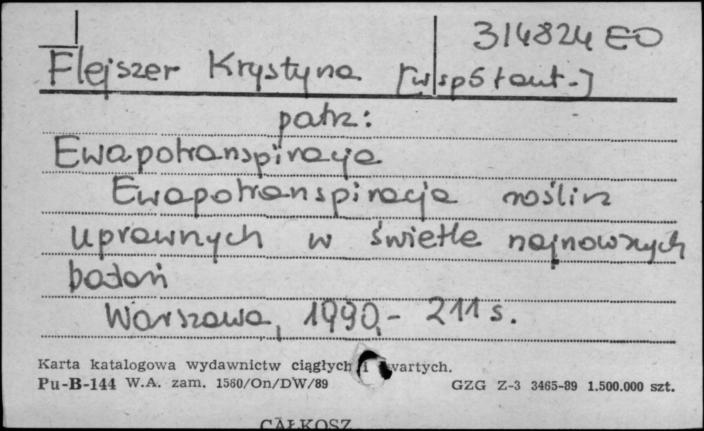 314824 EO
Flejszer Krystyna [współaut.]
patrz:
Ewapotranspiracja
Ewapotranspiracja roślin
uprawnych w świetle najnowszych
badań
Warszawa, 1990,- 211 s.
Karta katalogowa wydawnictw ciągłych i zwartych.
Pu-B-144 W.A. zam. 1560/On/DW/89 GZG Z-3 3465-89 1.500.000 szt.
CAŁKOSZ